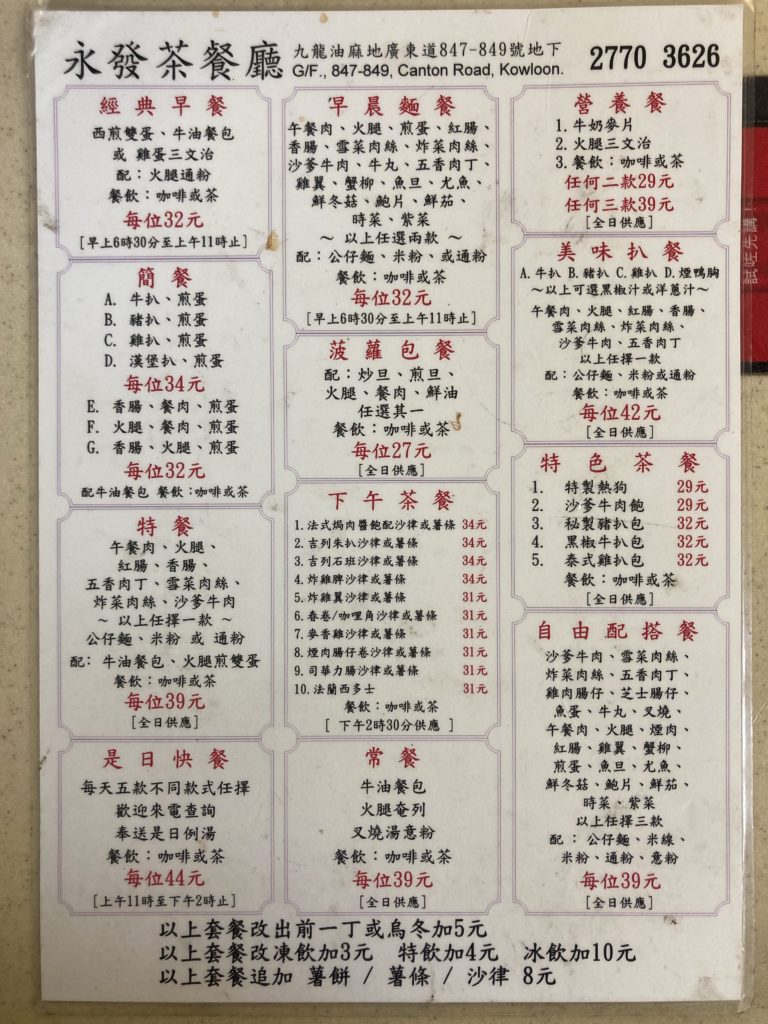 永發茶餐廳
九龍油麻地廣東道847-849號地下
G/F., 847-849, Canton Road, Kowloon.
2770 3626
經典早餐
西煎雙蛋、牛油餐包
或 雞蛋三文治
配：火腿通粉
餐飲：咖啡或茶
每位32元
[早上6時30分至上午11時止]
簡餐
A. 牛扒、煎蛋
B. 豬扒、煎蛋
C. 雞扒、煎蛋
D. 漢堡扒、煎蛋
每位34元
E. 香腸、餐肉、煎蛋
F. 火腿、餐肉、煎蛋
G. 香腸、火腿、煎蛋
每位32元
配牛油餐包 餐飲：咖啡或茶
特餐
午餐肉、火腿、
紅腸、香腸、
五香肉丁、雪菜肉絲、
炸菜肉絲、沙爹牛肉
～ 以上任擇一款 ～
公仔麵、米粉 或 通粉
配: 牛油餐包、火腿煎雙蛋
餐飲：咖啡或茶
每位39元
[全日供應]
是日快餐
每天五款不同款式任擇
歡迎來電查詢
奉送是日例湯
餐飲：咖啡或茶
每位44元
[上午11時至下午2時止]
早晨麵餐
午餐肉、火腿、煎蛋、紅腸、
香腸、雪菜肉絲、炸菜肉絲、
沙爹牛肉、牛丸、五香肉丁、
雞翼、蟹柳、魚旦、尤魚、
鮮冬菇、鮑片、鮮茄、
時菜、紫菜
～ 以上任選兩款 ～
配：公仔麵、米粉、或通粉
餐飲：咖啡或茶
每位32元
[早上6時30分至上午11時止]
菠蘿包餐
配：炒旦、煎旦、
火腿、餐肉、鮮油
任選其一
餐飲：咖啡或茶
每位27元
[全日供應]
下午茶餐
1.法式焗肉醬飽配沙律或薯條 34元
2.吉列朱扒沙律或薯條 34元
3.吉列石班沙律或薯條 34元
4.炸雞脾沙律或薯條 34元
5.炸雞翼沙律或薯條 31元
6.春卷/咖哩角沙律或薯條 31元
7.麥香雞沙律或薯條 31元
8.煙肉腸仔卷沙律或薯條 31元
9.司華力腸沙律或薯條 31元
10.法蘭西多士 31元
餐飲：咖啡或茶
[ 下午2時30分供應 ]
常餐
牛油餐包
火腿奄列
叉燒湯意粉
餐飲：咖啡或茶
每位39元
[全日供應]
營養餐
1.牛奶麥片
2.火腿三文治
3.餐飲：咖啡或茶
任何二款29元
任何三款39元
[全日供應]
美味扒餐
A.牛扒 B.豬扒 C.雞扒 D.煙鴨胸
～以上可選黑椒汁或洋蔥汁～
午餐肉、火腿、紅腸、香腸、
雪菜肉絲、炸菜肉絲、
沙爹牛肉、五香肉丁
以上任擇一款
配：公仔麵、米粉或通粉
餐飲：咖啡或茶
每位42元
[全日供應]
特色茶餐
1. 特製熱狗 29元
2. 沙爹牛肉飽 29元
3. 秘製豬扒包 32元
4. 黑椒牛扒包 32元
5. 泰式雞扒包 32元
餐飲：咖啡或茶
[全日供應]
自由配搭餐
沙爹牛肉、雪菜肉絲、
炸菜肉絲、五香肉丁、
雞肉腸仔、芝士腸仔、
魚蛋、牛丸、叉燒、
午餐肉、火腿、煙肉、
紅腸、雞翼、蟹柳、
煎蛋、魚旦、尤魚、
鮮冬菇、鮑片、鮮茄、
時菜、紫菜
以上任擇三款
配 ： 公仔麵、米線、
米粉、通粉、意粉
每位39元
[全日供應]
以上套餐改出前一丁或烏冬加5元
以上套餐改凍飲加3元 特飲加4元 冰飲加10元
以上套餐追加 薯餅 / 薯條 / 沙律 8元
試咗先講！